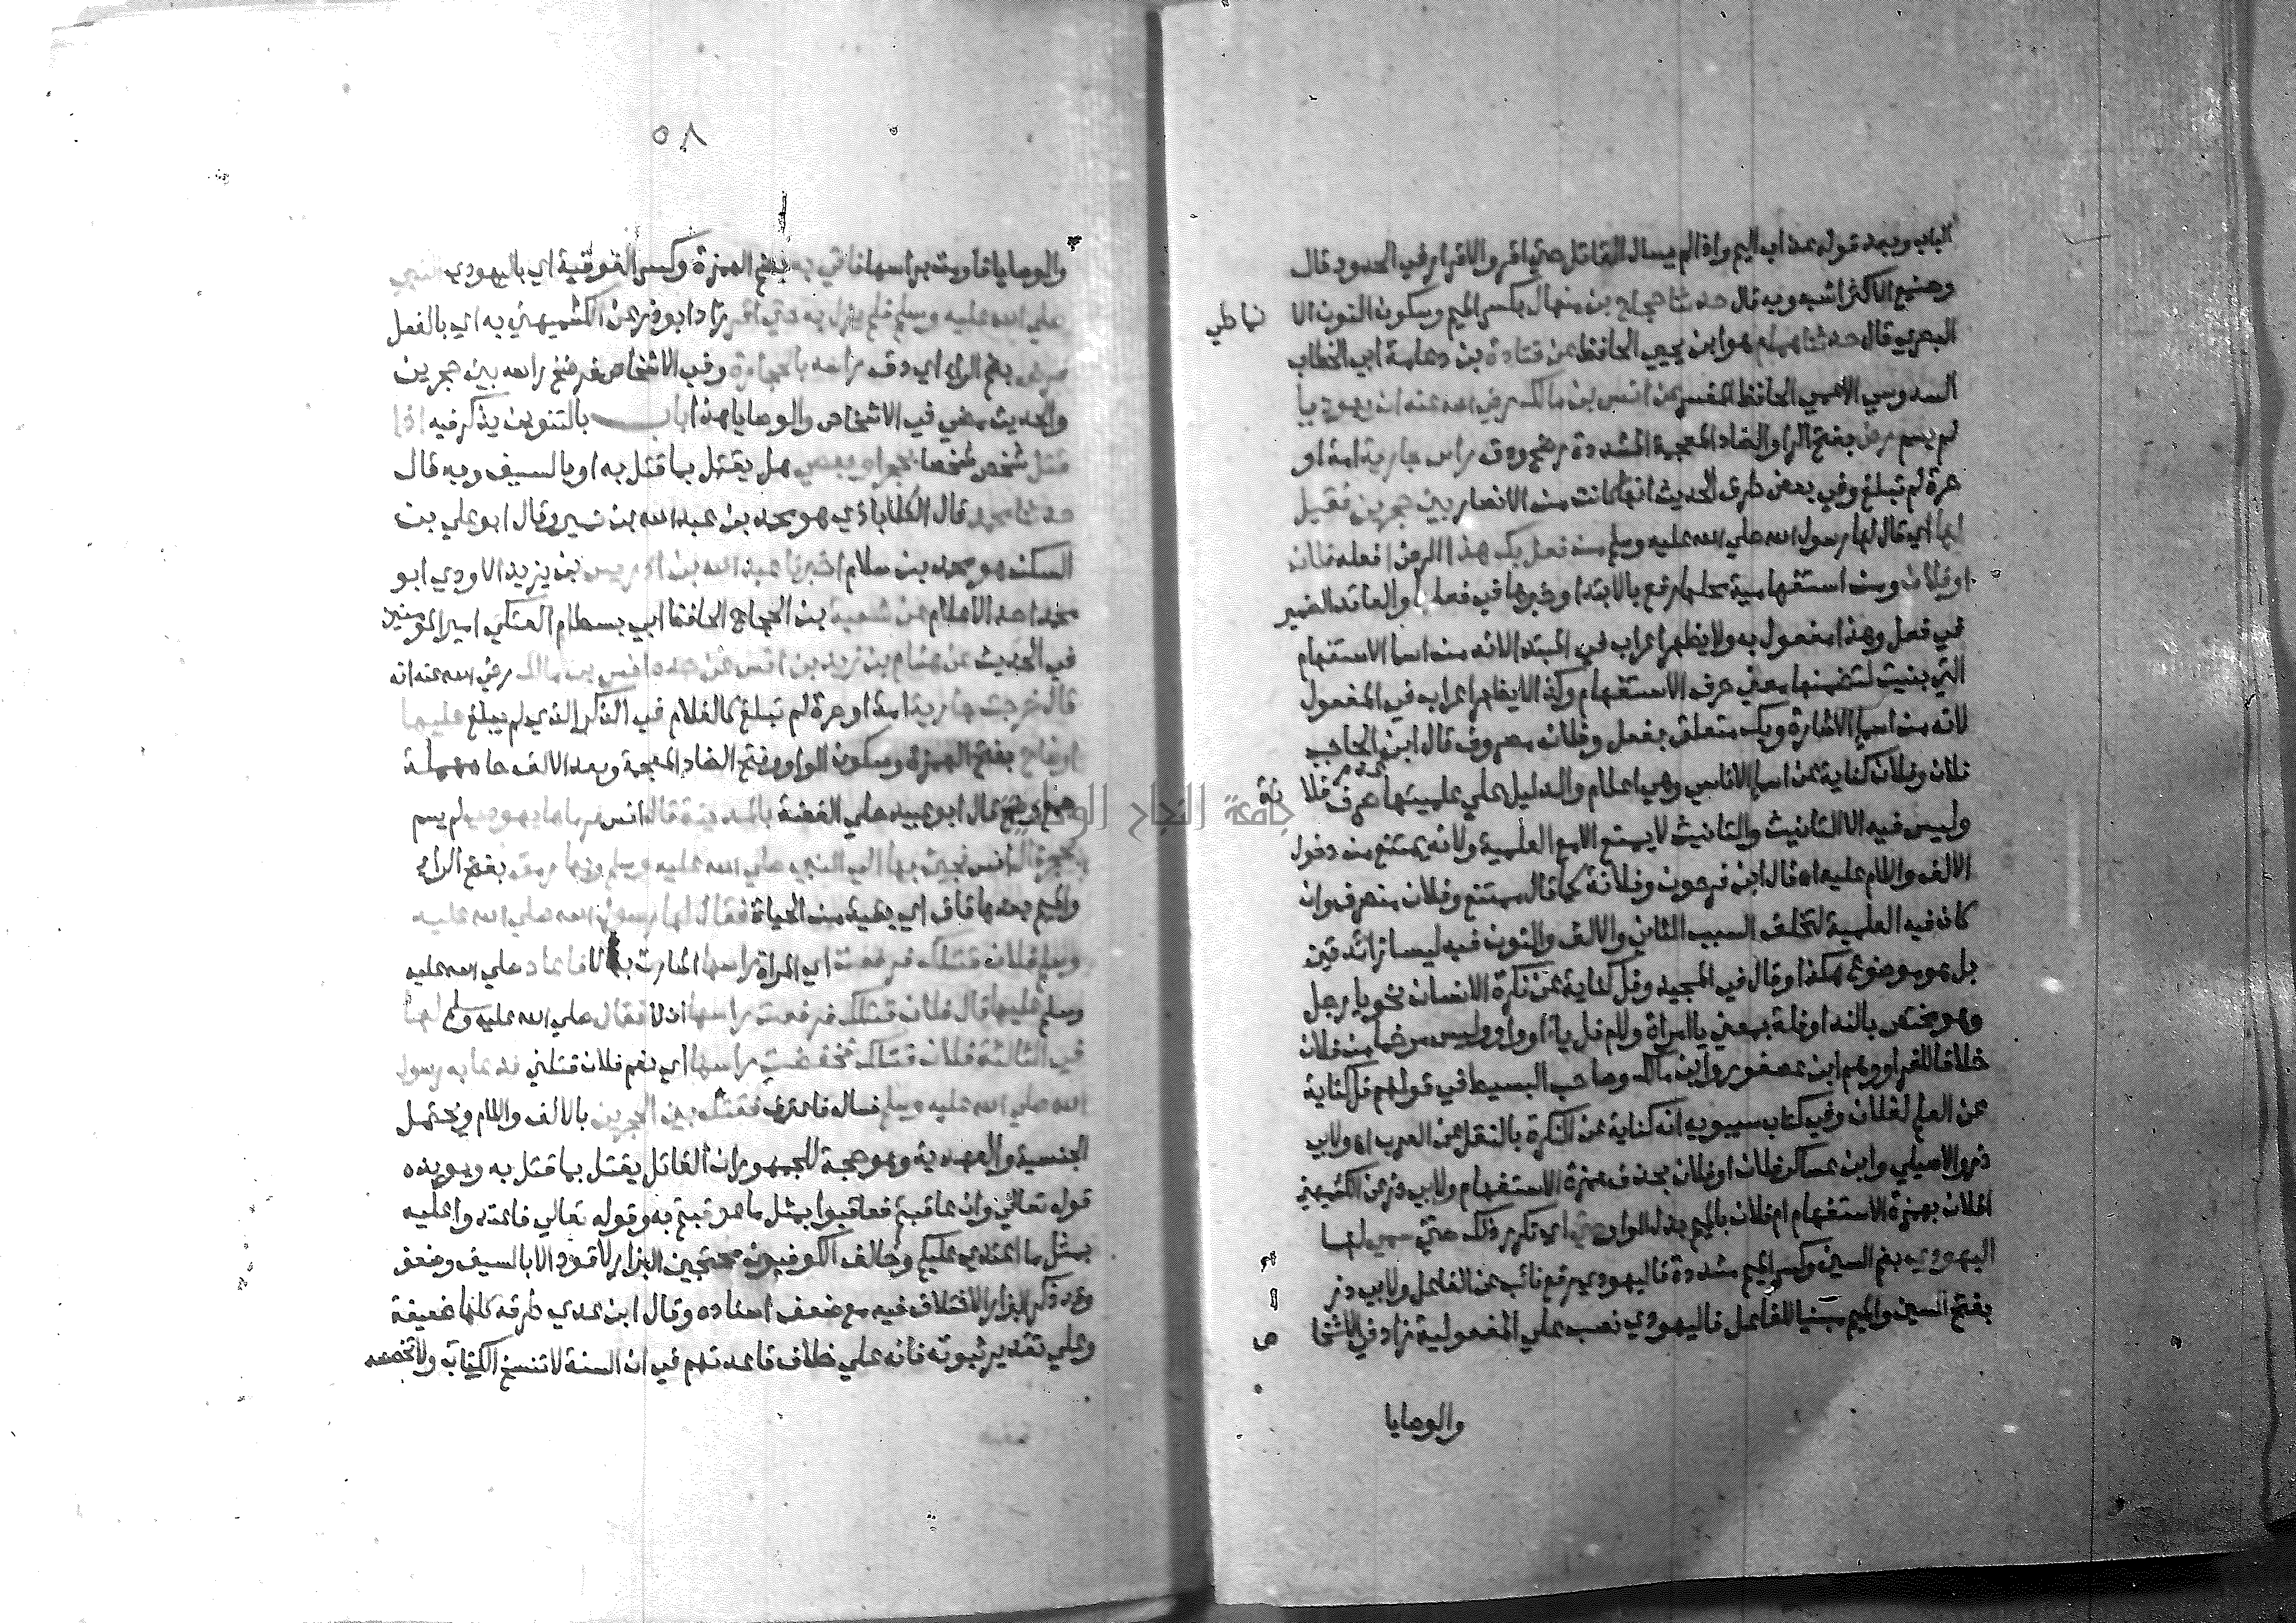 الباب وبعد قوله عذاب اليم واذا لم يسال القاتل حتي اقر والاقرار في الحدود قال
وصنيع الاكثر اشبه وبه قال حدثنا حجاج بن منهال بكسر الميم وسكون النون الا نماطي
البصري قال حدثنا همام هو ابن يحيي الحافظ عن قتادة بن دعامة ابي الخطاب
السدوسي الاعمي الحافظ المفسر عن انس بن مالك رضي الله عنه ان يهوديا
لم يسم رض بفتح الرا والضاد المعجمة المشددة رضخ ودق راس جارية امة او
حرة لم تبلغ وفي بعض طرق الحديث انها كانت من الانصار بين حجرين فقيل
لها اي قال لها رسول الله صلي الله عليه وسلم من فعل بك هذا الرض افعله فلان
او فلان ومن استفهامية محلها رفع بالابتدا وخبرها في فعل والعائد الضمير
في فعل وهذا مفعول به ولا يظهر اعراب في المبتدا لانه من اسما الاستفهام
التي بنيت لتضمنها معني حرف الاستفهام وكذا لا يظهر اعراب في المفعول
لانه من اسما الاشارة وبك متعلق بفعل وفلان معروف قال ابن الحاجب
فلان وفلانة كناية عن اسما الاناسي وهي اعلام والدليل علي علميتها عدم صرف فلا نة
وليس فيه الا التانيث والتانيث لا يمنع الا مع العلمية ولانه يمتنع من دخول
الالف واللام عليه اه قال ابن فرحون وفلانة كما قال ممتنع وفلان منصرف وان
كان فيه العلمية لتخلف السبب الثاني والالف والنون فيه ليسا زائدتين
بل هو موضوع هكذا وقال في المجيد وفل كناية عن نكرة الانسان نحو يا رجل
وهو مختص بالندا وفلة بمعني يا امراة ولام فل ياء او واو وليس مرخما من فلان
خلافا للفرا ووهم ابن عصفور وابن مالك وصاحب البسيط في قولهم فل كناية
عن العلم لفلان وفي كتاب سيبويه انه كناية عن النكرة بالنقل عن العرب اه ولابي
ذر والاصيلي وابن عساكر فلان او فلان بحذف همزة الاستفهام ولابي ذر عن الكشميهني
افلان بهمزة الاستفهام ام فلان بالميم بدل الواو حتي اي تكرر ذلك حتي سمي لها
اليهودي بضم السين وكسر الميم مشددة فاليهودي رفع نائب عن الفاعل ولابي ذر
بفتح السين والميم مبنيا للفاعل فاليهودي نصب علي المفعولية زاد في الاشخا ص
والوصايا
٥٨
والوصايا فاومت براسها فاتي به بضم الهمزة وكسر الفوقية اي باليهودي النبي
صلي الله عليه وسلم فلم يزل به حتي اقر زاد ابو ذر عن الكشميهني به اي بالفعل
فرض بضم الراء اي دق راسه بالحجارة وفي الاشخاص فرضخ راسه بين حجرين
والحديث مضي في الاشخاص والوصايا هذا باب بالتنوين يذكر فيه اذا
قتل شخص شخصا بحجر او بعصي هل يقتل بما قتل به او بالسيف وبه قال
حدثنا محمد قال الكلاباذي هو محمد بن عبد الله بن نمير وقال ابو علي بن
السكن هو محمد بن سلام اخبرنا عبد الله بن ادريس بن يزيد الاودي ابو
محمد احد الاعلام عن شعبة بن الحجاج الحافظ ابي بسطام العتكي امير المومنين
في الحديث عن هشام بن زيد بن انس عن جده انس بن مالك رضي الله عنه انه
قال خرجت جارية امة او حرة لم تبلغ كالغلام في الذكر الذي لم يبلغ عليها
اوضاح بفتح الهمزة وسكون الواو وفتح الضاد المعجمة وبعد الالف حاء مهملة
جمع وضح قال ابو عبيد حلي الفضة بالمدينة قال انس فرماها يهودي لم يسم
بحجر قال انس فجيئ بها الي النبي صلي الله عليه وسلم وبها رمق بفتح الراء
والميم بعدها قاف اي بقية من الحياة فقال لها رسول الله صلي الله عليه
وسلم فلان قتلك فرفعت اي المراة راسها اشارت به لا فاعاد صلي الله عليه
وسلم عليها قال فلان قتلك فرفعت راسها ان لا فقال صلي الله عليه وسلم لها
في الثالثة فلان قتلك فخفضت راسها اي نعم فلان قتلني فدعا به رسول
الله صلي الله عليه وسلم فساله فاعترف فقتله بين الحجرين بالالف واللام ويحتمل
الجنسية والعهدية وهو حجة للجمهور ان القاتل يقتل بما قتل به ويويده
قوله تعالي وان عاقبتم فعاقبوا بمثل ما عوقبتم به وقوله تعالي فاعتدوا عليه
بمثل ما اعتدي عليكم وخالف الكوفيون محتجين البزار لا قود الا بالسيف وضعف
وقد ذكر البزار الاختلاف فيه مع ضعف اسناده وقال ابن عدي طرقه كلها ضعيفة
وعلي تقدير ثبوته فانه علي خلاف قاعدتهم في ان السنة لا تنسخ الكتاب ولا تخصصه
جامعة النجاح الوطنية